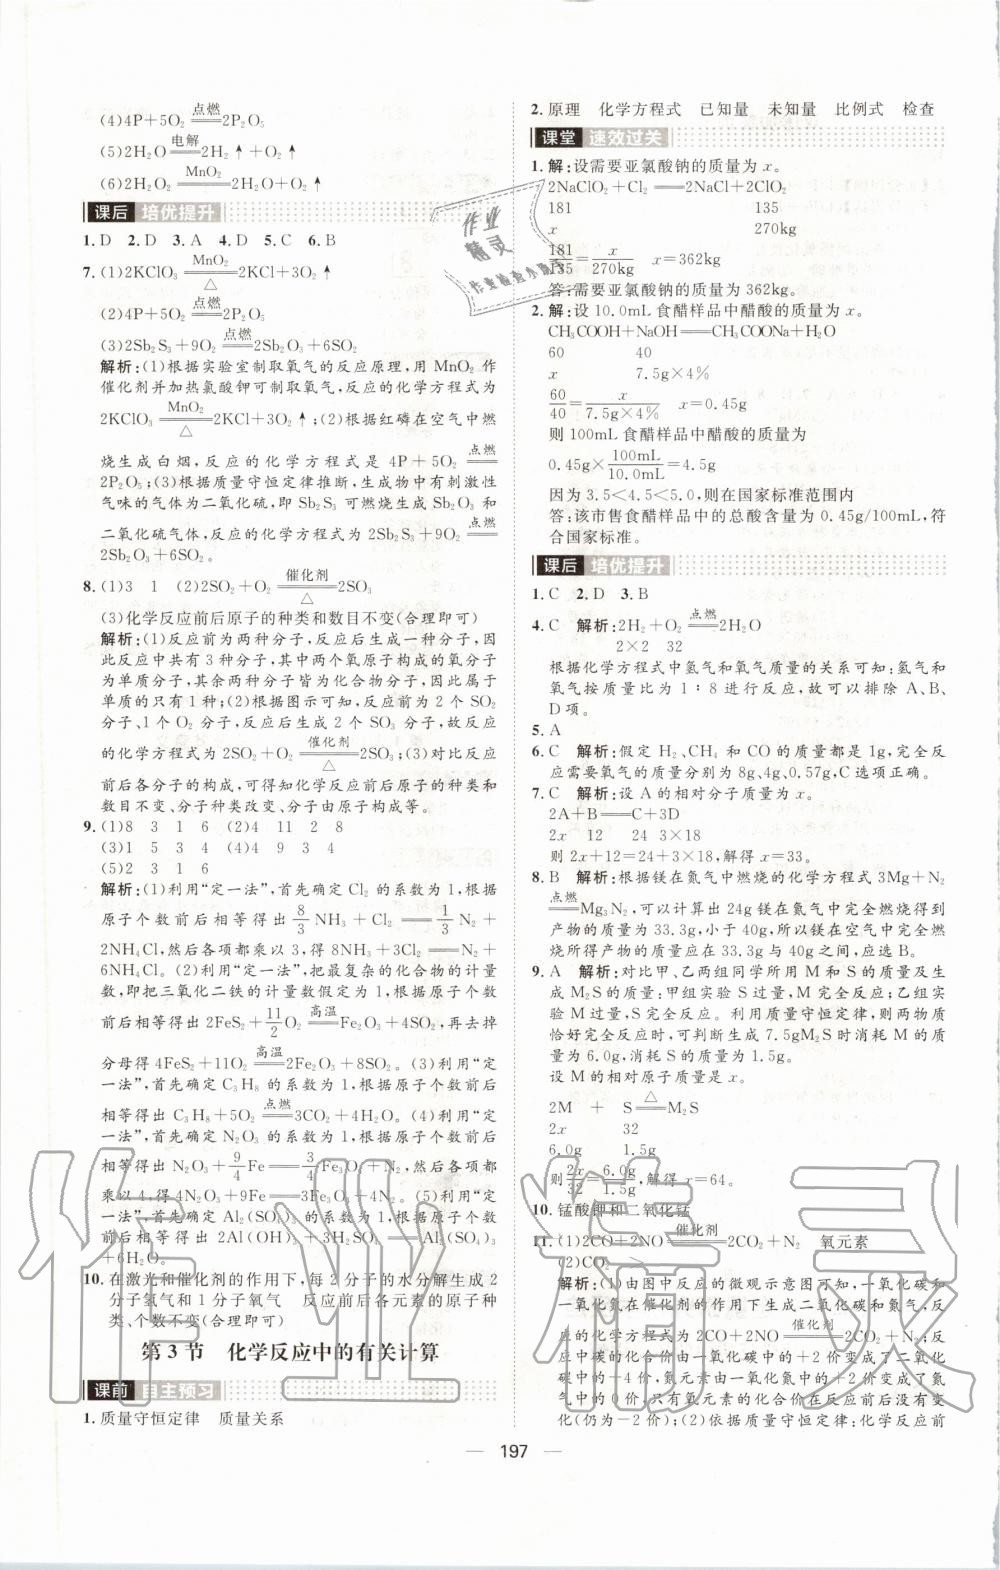 (4)4P+5O₂ =点燃= 2P₂O₅
(5)2H₂O =电解= 2H₂↑+O₂↑
(6)2H₂O₂ =MnO₂= 2H₂O+O₂↑
课后 培优提升
1. D 2. D 3. A 4. D 5. C 6. B
7. (1)2KClO₃ =MnO₂/△= 2KCl+3O₂↑
(2)4P+5O₂ =点燃= 2P₂O₅
(3)2Sb₂S₃+9O₂ =点燃= 2Sb₂O₃+6SO₂
解析:(1)根据实验室制取氧气的反应原理,用 MnO₂ 作
催化剂并加热氯酸钾可制取氧气,反应的化学方程式为
2KClO₃ =MnO₂/△= 2KCl+3O₂↑;(2)根据红磷在空气中燃
烧生成白烟,反应的化学方程式是 4P+5O₂ =点燃=
2P₂O₅;(3)根据质量守恒定律推断,生成物中有刺激性
气味的气体为二氧化硫,即 Sb₂S₃ 可燃烧生成 Sb₂O₃ 和
二氧化硫气体,反应的化学方程式为 2Sb₂S₃+9O₂ =点燃=
2Sb₂O₃+6SO₂。
8. (1)3 1 (2)2SO₂+O₂ =催化剂/△= 2SO₃
(3)化学反应前后原子的种类和数目不变(合理即可)
解析:(1)反应前为两种分子,反应后生成一种分子,因
此反应中共有 3 种分子,其中两个氧原子构成的氧分子
为单质分子,其余两种分子皆为化合物分子,因此属于
单质的只有 1 种;(2)根据图示可知,反应前为 2 个 SO₂
分子、1 个 O₂ 分子,反应后生成 2 个 SO₃ 分子,故反应
的化学方程式为 2SO₂+O₂ =催化剂/△= 2SO₃;(3)对比反应
前后各分子的构成,可得知化学反应前后原子的种类和
数目不变、分子种类改变、分子由原子构成等。
9. (1)8 3 1 6 (2)4 11 2 8
(3)1 5 3 4 (4)4 9 3 4
(5)2 3 1 6
解析:(1)利用“定一法”,首先确定 Cl₂ 的系数为 1,根据
原子个数前后相等得出 8/3 NH₃+Cl₂ == 1/3 N₂+
2NH₄Cl,然后各项都乘以 3,得 8NH₃+3Cl₂ == N₂+
6NH₄Cl。(2)利用“定一法”,把最复杂的化合物的计量
数,即把三氧化二铁的计量数假定为 1,根据原子个数
前后相等得出 2FeS₂+11/2 O₂ =高温= Fe₂O₃+4SO₂,再去掉
分母得出 4FeS₂+11O₂ =高温= 2Fe₂O₃+8SO₂。(3)利用“定
一法”,首先确定 C₃H₈ 的系数为 1,根据原子个数前后
相等得出 C₃H₈+5O₂ =点燃= 3CO₂+4H₂O。(4)利用“定
一法”,首先确定 N₂O₃ 的系数为 1,根据原子个数前后
相等得出 N₂O₃+9/4 Fe == 3/4
乘以 4,得 4N₂O₃+9Fe == 3Fe₃O₄+4N₂。(5)利用“定
一法”,首先确定 Al₂(SO₄)₃ 的系数为 1,根据原子个数
前后相等得出 2Al(OH)₃+3H₂SO₄ == Al₂(SO₄)₃
+6H₂O。
10. 在激光和催化剂的作用下,每 2 分子的水分解生成 2
分子氢气和 1 分子氧气 反应前后各元素的原子种
类、个数不变(合理即可)
第 3 节 化学反应中的有关计算
课前 自主预习
1. 质量守恒定律 质量关系
2. 原理 化学方程式 已知量 未知量 比例式 检查
课堂 速效过关
1. 解:设需要亚氯酸钠的质量为 x。
2NaClO₂+Cl₂ == 2NaCl+2ClO₂
181 135
x 270kg
181/135=x/270kg x=362kg
答:需要亚氯酸钠的质量为 362kg。
2. 解:设 10.0mL 食醋样品中醋酸的质量为 x。
CH₃COOH+NaOH == CH₃COONa+H₂O
60 40
x 7.5g×4%
60/40=x/7.5g×4% x=0.45g
则 100mL 食醋样品中醋酸的质量为
0.45g×100mL/10.0mL=4.5g
因为 3.5<4.5<5.0,则在国家标准范围内
答:该市售食醋样品中的总酸含量为 0.45g/100mL,符
合国家标准。
课后 培优提升
1. C 2. D 3. B
4. C 解析:2H₂+O₂ =点燃= 2H₂O
2×2 32
根据化学方程式中氢气和氧气质量的关系可知:氢气和
氧气按质量比为 1:8 进行反应,故可以排除 A、B、
D 项。
5. A
6. C 解析:假定 H₂、CH₄ 和 CO 的质量都是 1g,完全反
应需要氧气的质量分别为 8g、4g、0.57g,C 选项正确。
7. C 解析:设 A 的相对分子质量为 x。
2A+B == C+3D
2x 12 24 3×18
则 2x+12=24+3×18,解得 x=33。
8. B 解析:根据镁在氮气中燃烧的化学方程式 3Mg+N₂
=点燃= Mg₃N₂,可以计算出 24g 镁在氮气中完全燃烧得到
产物的质量为 33.3g,小于 40g,所以镁在空气中完全燃
烧所得产物的质量应在 33.3g 与 40g 之间,应选 B。
9. A 解析:对比甲、乙两组同学所用 M 和 S 的质量及生
成 M₂S 的质量:甲组实验 S 过量,M 完全反应;乙组实
验 M 过量,S 完全反应。利用质量守恒定律,则两物质
恰好完全反应时,可判断生成 7.5gM₂S 时消耗 M 的质
量为 6.0g,消耗 S 的质量为 1.5g。
设 M 的相对原子质量是 x。
2M + S =△= M₂S
2x 32
6.0g 1.5g
则 2x/32=6.0g/1.5g,解得 x=64。
10. 锰酸钾和二氧化锰
11. (1)2CO+2NO =催化剂= 2CO₂+N₂ 氧元素
(2)CO₂
解析:(1)由图中反应的微观示意图可知,一氧化碳和
一氧化氮在催化剂的作用下生成二氧化碳和氮气,反
应的化学方程式为 2CO+2NO =催化剂= 2CO₂+N₂。
应中碳的化合价由+2 价变成了二氧化
碳中的+4 价,氮元素的化合价由+2 价变成了氮气
中的 0 价,只有氧元素的化合价在反应前后没有变
化(仍为−2 价);(2)依据质量守恒定律:化学反应前
197
作业
精灵
作业检查小助手
作业精灵